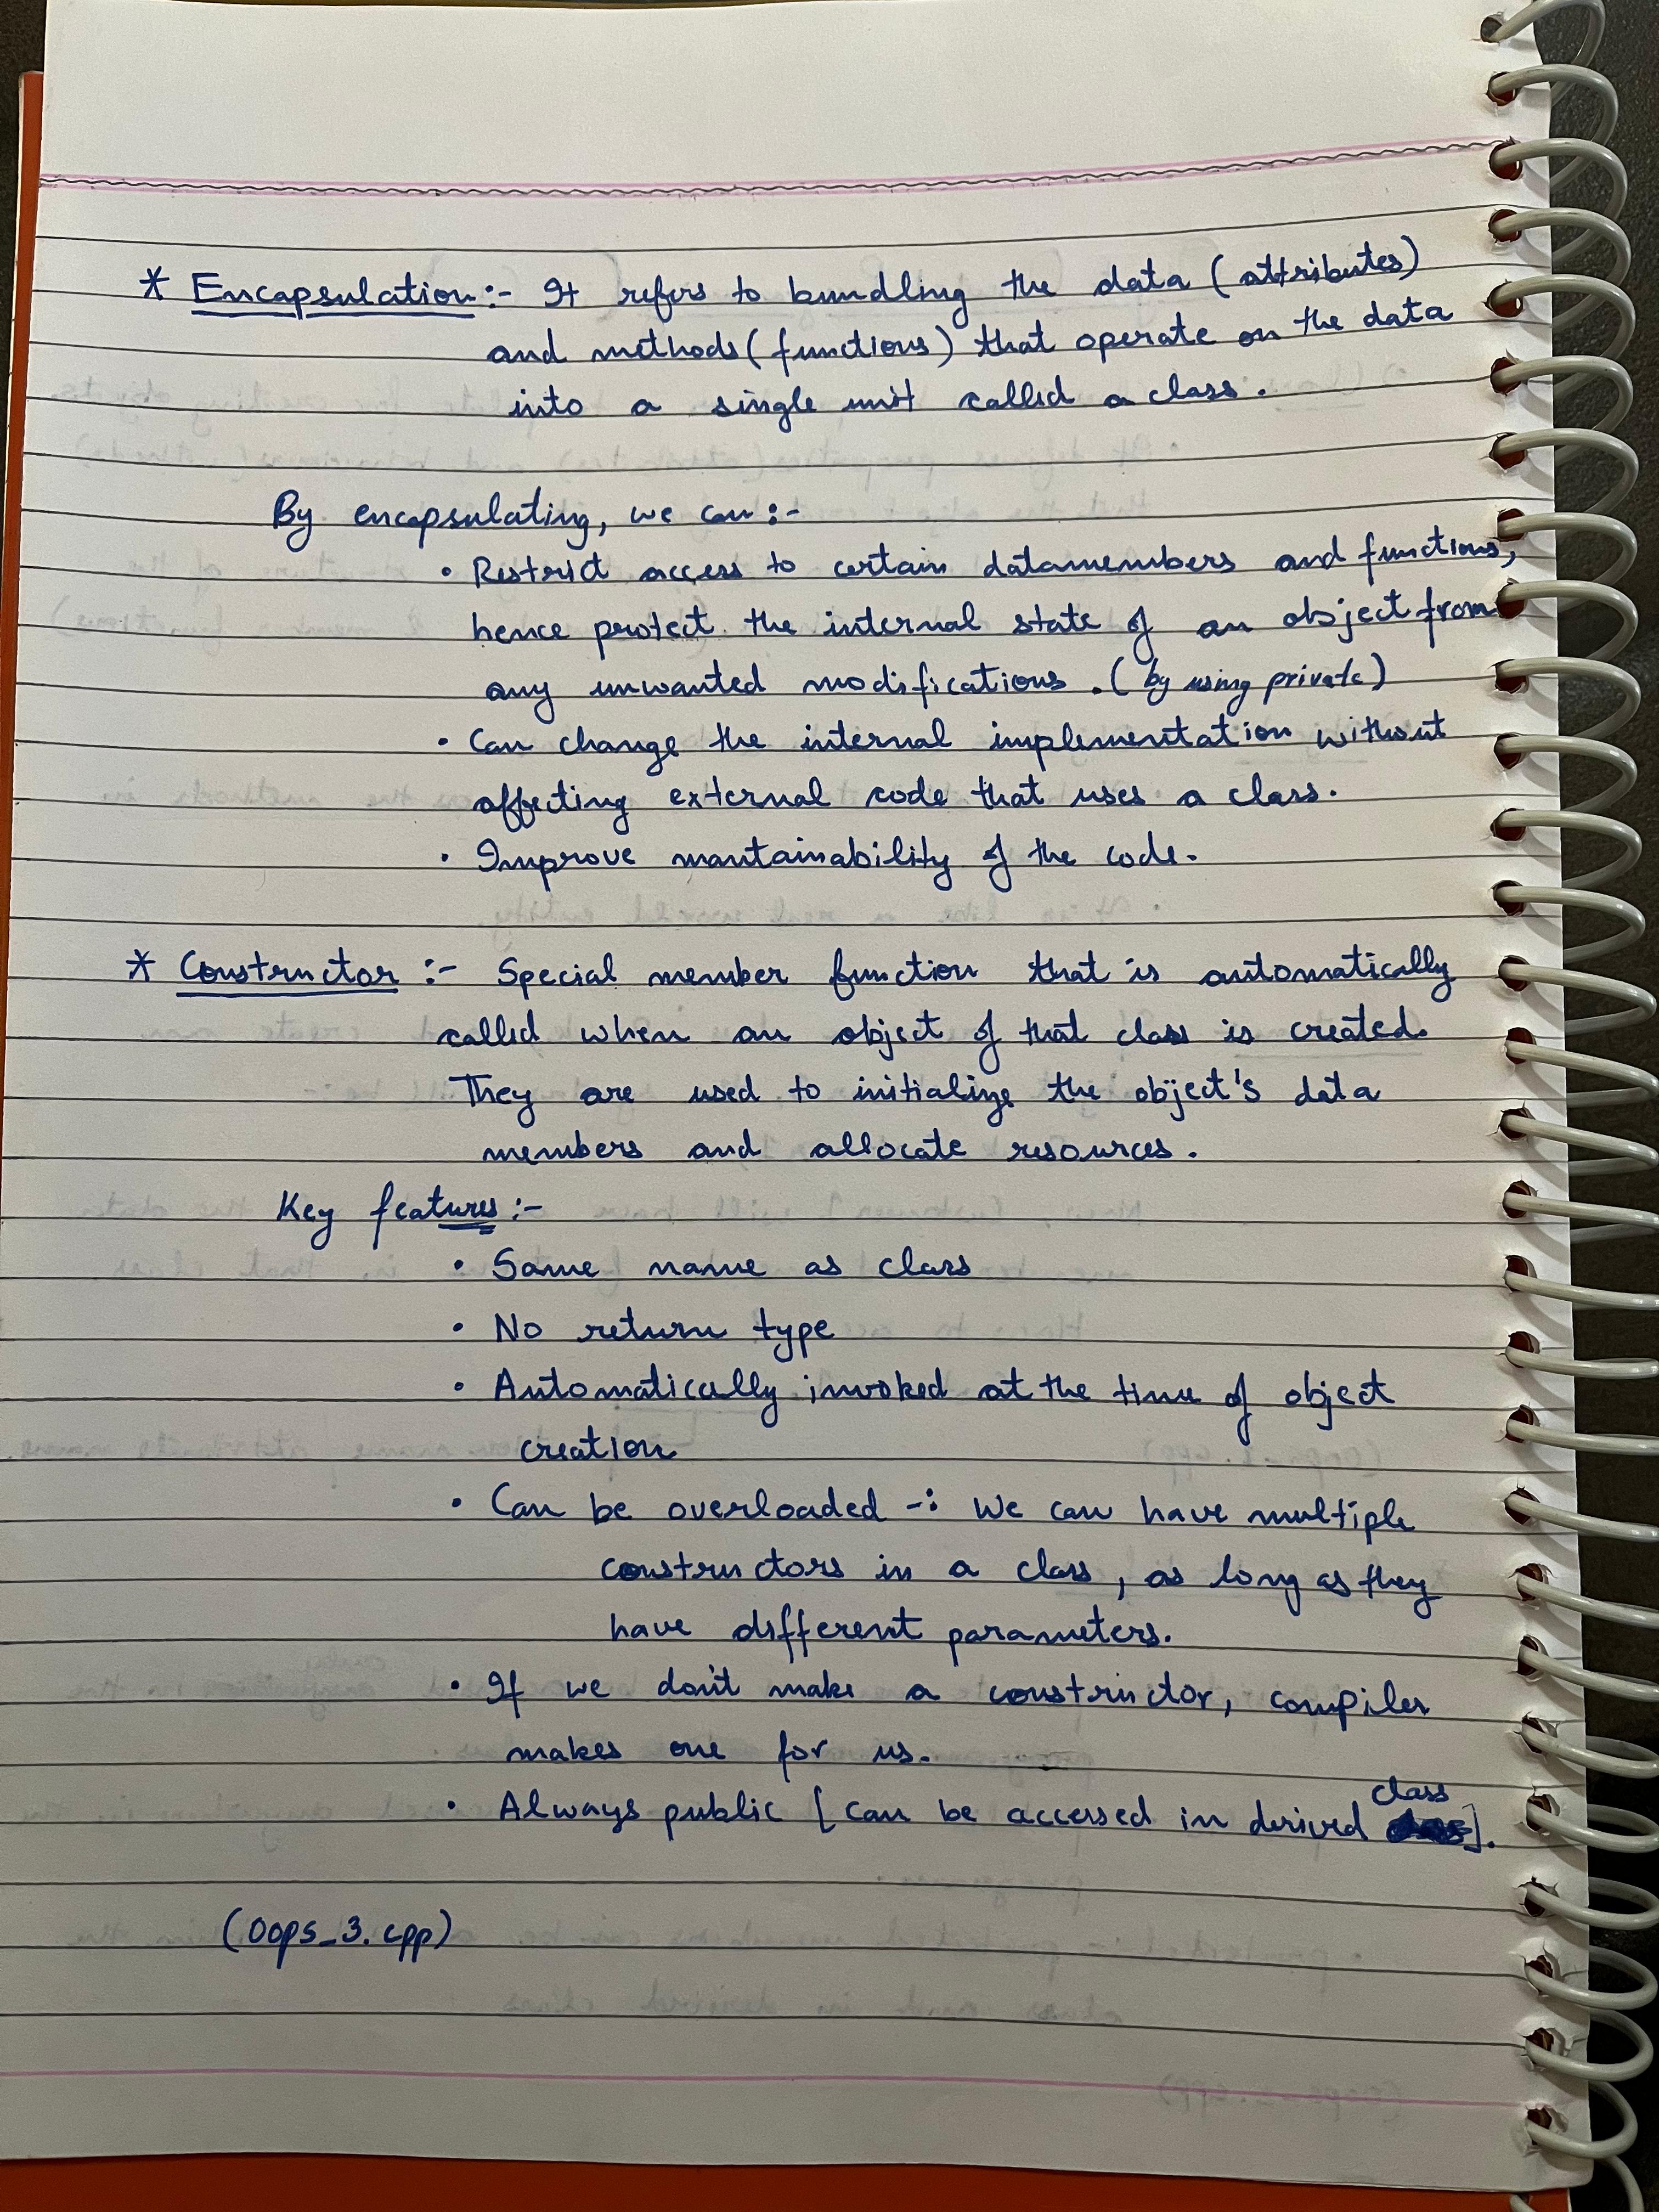 * Encapsulation :- It refers to bundling the data (attributes)
and methods (functions) that operate on the data
into a single unit called a class.
By encapsulating, we can :-
• Restrict access to certain datamembers and functions,
hence protect the internal state of an object from
any unwanted modifications. (by using private)
• Can change the internal implementation without
affecting external code that uses a class.
• Improve mantainability of the code.
* Constructor :- Special member function that is automatically
called when an object of that class is created.
They are used to initialize the object's data
members and allocate resources.
Key features :-
• Same name as class
• No return type
• Automatically invoked at the time of object
creation
• Can be overloaded -: We can have multiple
constructors in a class, as long as they
have different parameters.
• If we don't make a constructor, compiler
makes one for us.
• Always public [can be accessed in derived class].
(Oops_3.cpp)